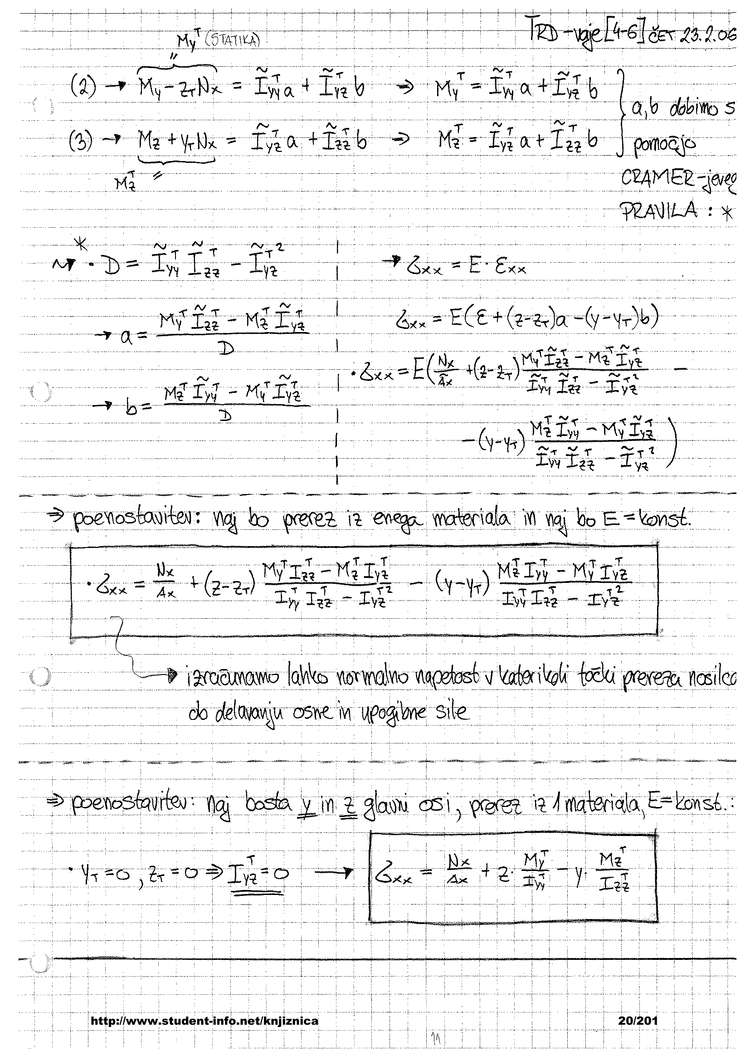 TRD-vaje [4-6] ČET 23.2.06
M_y^T (STATIKA)
(2) → M_y - z_T N_x = Ĩ_yy^T a + Ĩ_yz^T b → M_y^T = Ĩ_yy^T a + Ĩ_yz^T b
(3) → M_z + y_T N_x = Ĩ_yz^T a + Ĩ_zz^T b → M_z^T = Ĩ_yz^T a + Ĩ_zz^T b
M_z^T =
a,b dobimo s
pomočjo
CRAMER-jeveg
PRAVILA : *
* • D = Ĩ_yy^T Ĩ_zz^T - Ĩ_yz^T²
→ a = (M_y^T Ĩ_zz^T - M_z^T Ĩ_yz^T) / D
→ b = (M_z^T Ĩ_yy^T - M_y^T Ĩ_yz^T) / D
→ σ_xx = E · ε_xx
σ_xx = E(ε + (z-z_T)a - (y-y_T)b)
• σ_xx = E(N_x/Ã_x + (z-z_T) (M_y^T Ĩ_zz^T - M_z^T Ĩ_yz^T)/(Ĩ_yy^T Ĩ_zz^T - Ĩ_yz^T²) -
-(y-y_T) (M_z^T Ĩ_yy^T - M_y^T Ĩ_yz^T)/(Ĩ_yy^T Ĩ_zz^T - Ĩ_yz^T²))
⇒ poenostavitev: naj bo prerez iz enega materiala in naj bo E = konst.
• σ_xx = N_x/A_x + (z-z_T) (M_y^T I_zz^T - M_z^T I_yz^T)/(I_yy^T I_zz^T - I_yz^T²) - (y-y_T) (M_z^T I_yy^T - M_y^T I_yz^T)/(I_yy^T I_zz^T - I_yz^T²)
→ izračunamo lahko normalno napetost v katerikoli točki prereza nosilca
ob delavanju osne in upogibne sile
⇒ poenostavitev: naj bosta y in z glavni osi, prerez iz 1 materiala, E=konst.:
• y_T = 0, z_T = 0 ⇒ I_yz^T = 0 → σ_xx = N_x/A_x + z · M_y^T/I_yy^T - y · M_z^T/I_zz^T
http://www.student-info.net/knjiznica 20/201
11